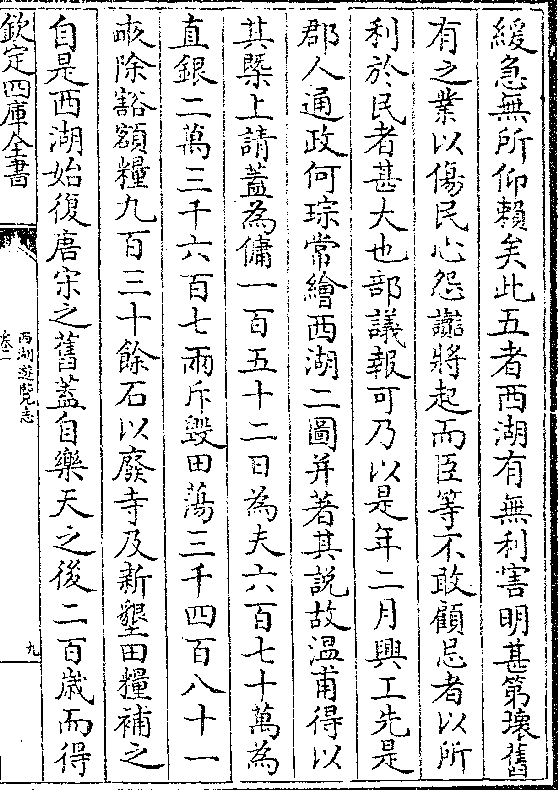 緩急無所仰賴矣此五者西湖有無利害明甚第壞舊
有之業以傷民心怨讟將起而臣等不敢顧忌者以所
利於民者甚大也部議報可乃以是年二月興工先是
郡人通政何琮常繪西湖二圖并著其說故温甫得以
其槩上請蓋為傭一百五十二日為夫六百七十萬為
直銀二萬三千六百七兩斥毁田蕩三千四百八十一
畝除豁額糧九百三十餘石以廢寺及新墾田糧補之
自是西湖始復唐宋之舊蓋自樂天之後二百嵗而得
欽定四庫全書
西湖遊覽志
卷二
九